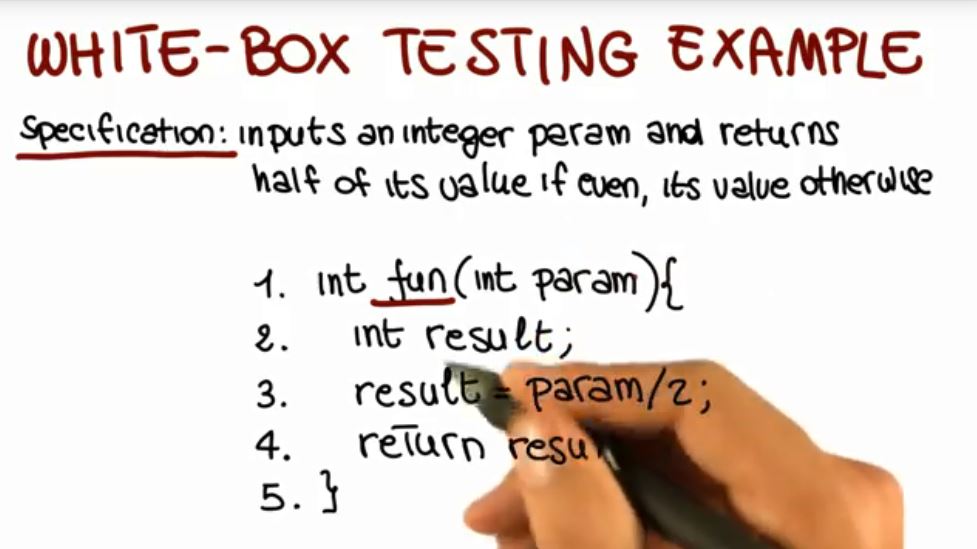 WHITE-BOX TESTING EXAMPLE
Specification: inputs an integer param and returns
half of its value if even, its value otherwise
1. int fun(int param){
2. int result;
3. result = param/2;
4. return
5. }